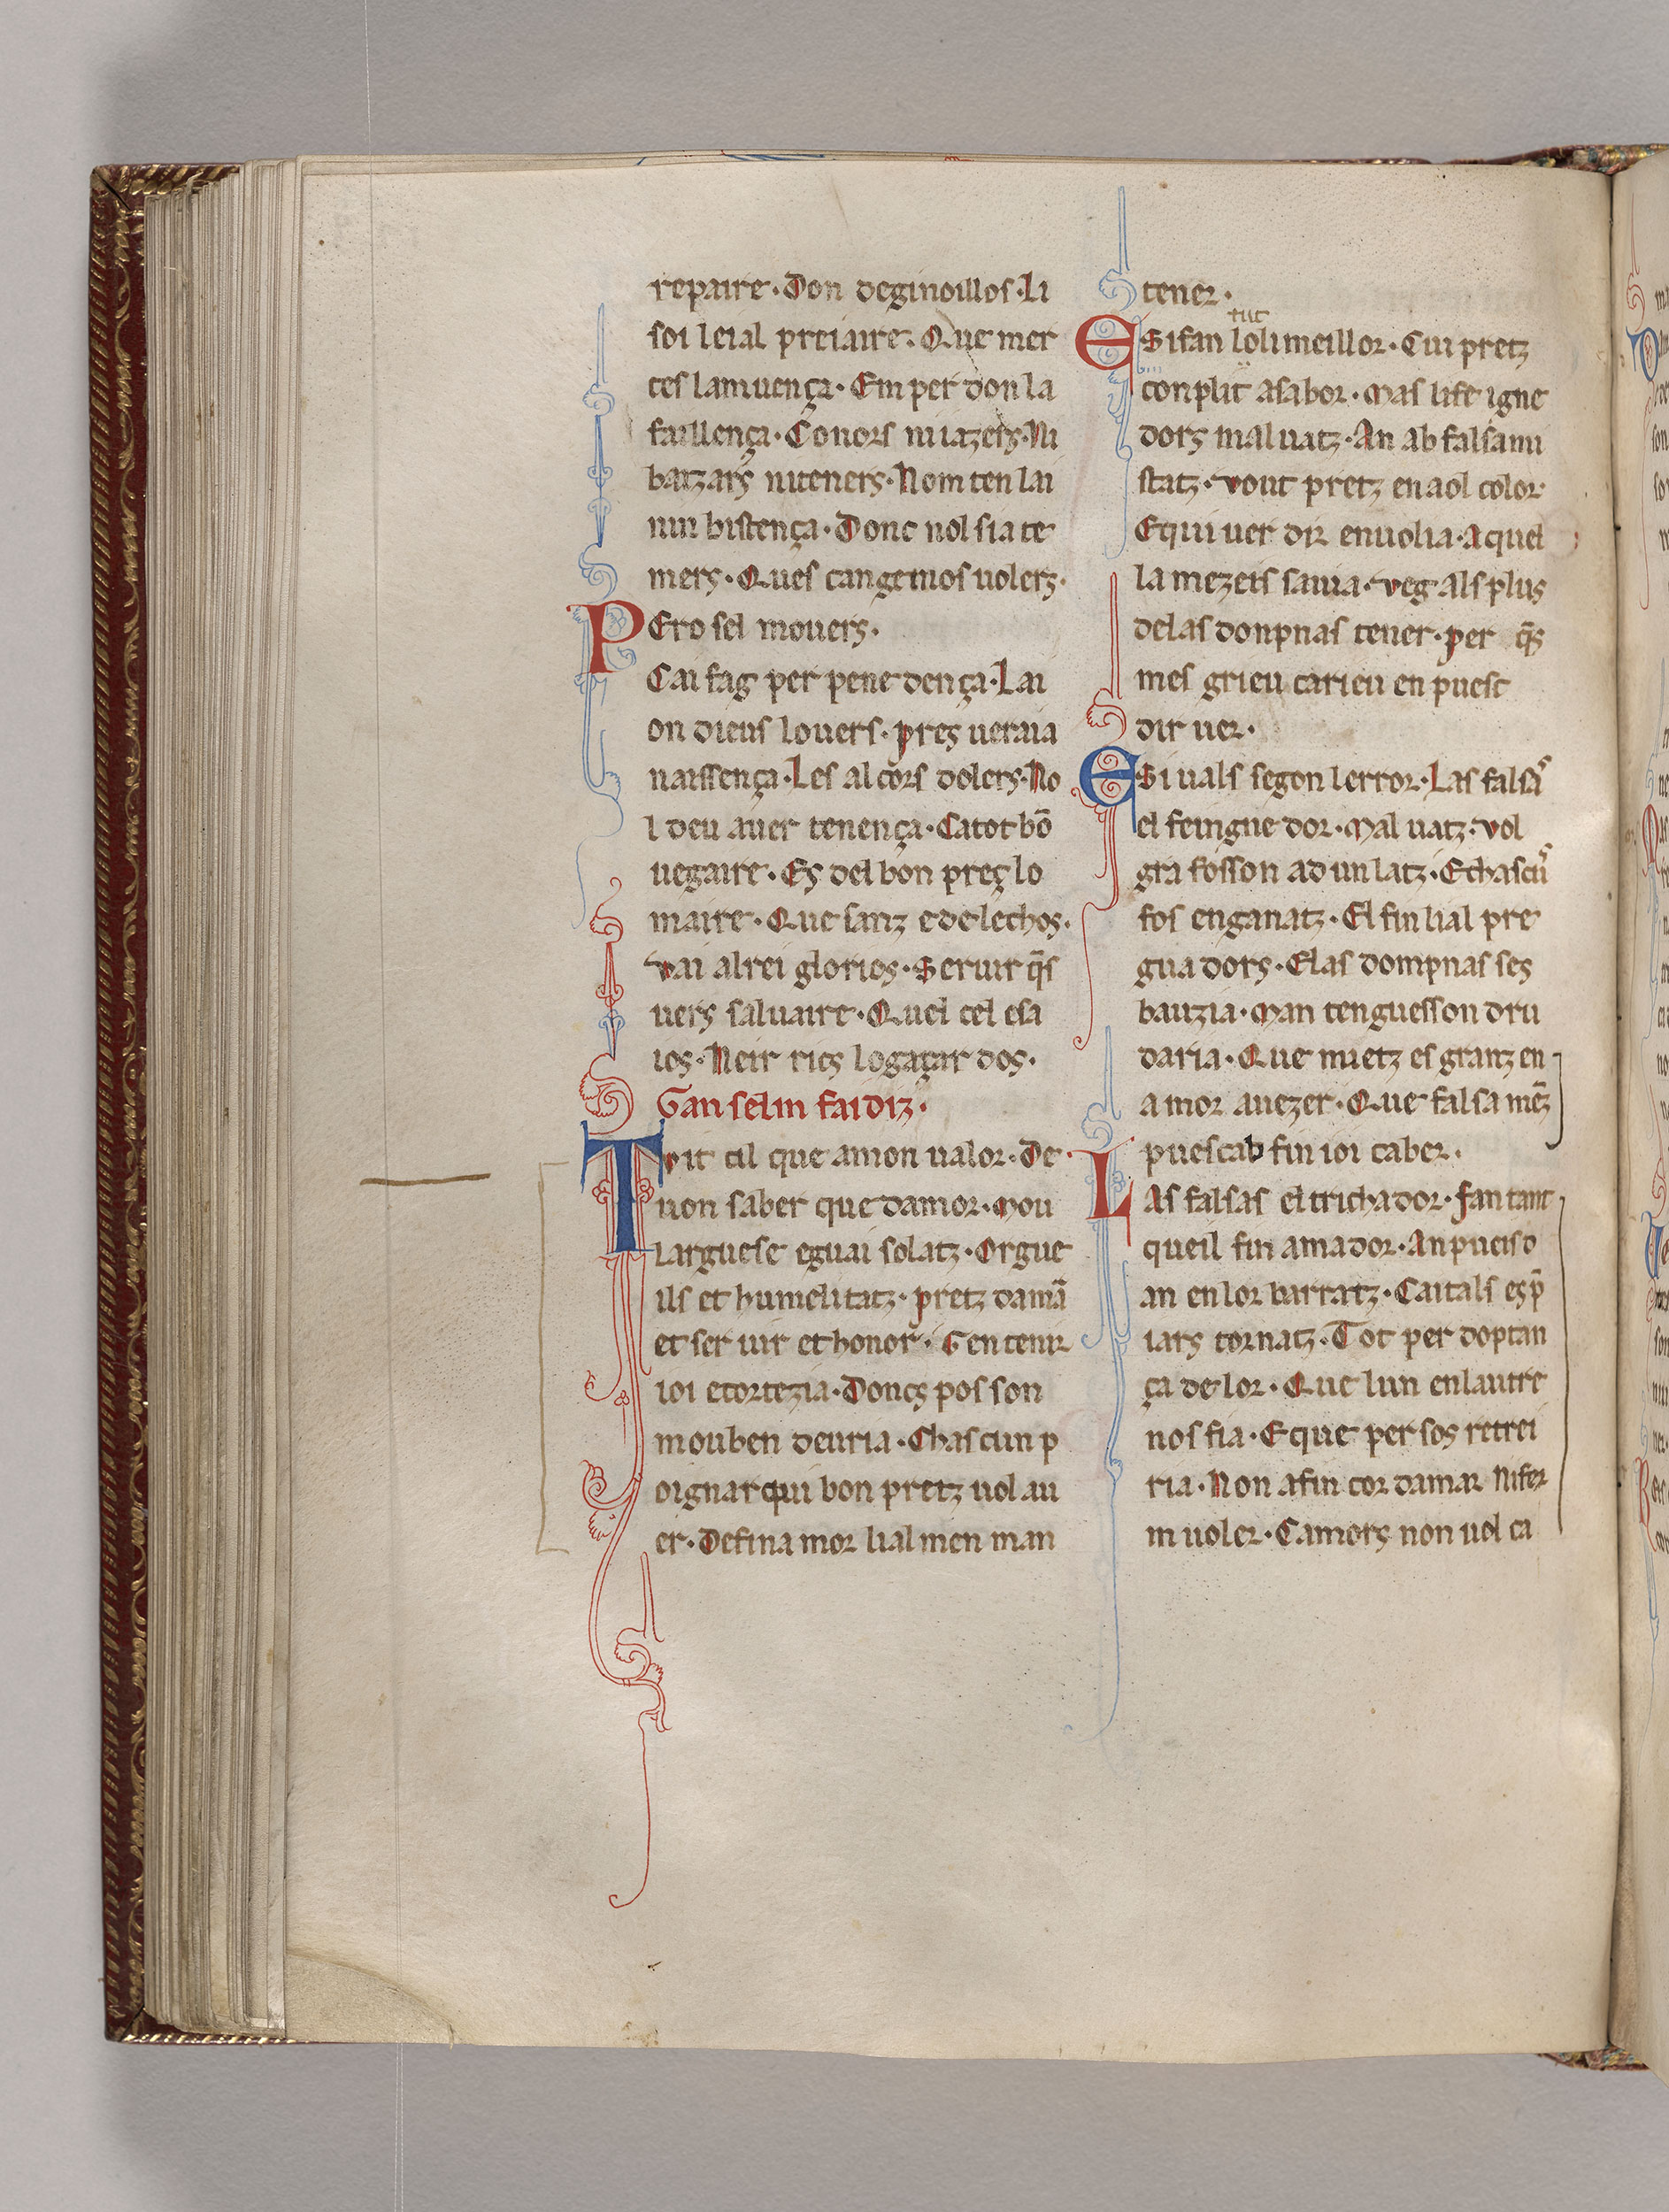 repaire · Don deginoillos · Li
soi leial preiaire · Que mer
ces lamuença · Em per don la
faillença · Conors ni iazers · Ni
baizars niteners · Nom ten lai
nin bistença · Donc nol sia te
mers · Ques cangemos uolers ·
PEro sel mouers ·
Cai fag per pene dença · Lai
on dieus louers · pres ueraia
naissença · Les al cors dolers · No
l deu auer tenença · Catot bō
uegaire · Es del bon preç lo
maire · Que sanz e de lechos ·
vai alrei glorios · Seruir q̄s
uers saluaire · Quel cel esa
ios · Neir rics logaçar dos ·
Ganselm faidiz ·
Tvit cil que amon ualor · De
uon saber que damor · Mou
Larguese eguai solatz · Orgue
ils et humelitatz · pretz damā
et ser uir et honor · Gen tenir
ioi ecortezia · Doncs pos son
mouben deuria · Chascun p
oignar qui bon pretz uol au
er · Defina mor lialmen man
tener ·
tut
ESifan lolimeillor · Cui pretz
conplit asabor · Mas life igne
dors maluatz · An ab falsanu
statz · vout pretz enaol color ·
Equi uer dir enuolia · Aquel
la mezeis sauia · veg als plus
delas donpnas tener · per q̄s
mes grieu carieu en puesc
dir uer ·
ESi uals segon lerror · Las falsas
el feingue dor · Mal uatz · vol
gra fosson ad un latz · E chascus
fos enganatz · El fin lial pre
gua dors · Elas dompnas ses
bauzia · Man tenguesson dru
daria · Que mietz es granz en
amor auezer · Que falsa mēz
puescab fin ioi caber ·
LAs falsas el trichador · fan tant
queil fin amador · Anpueis d
an enlor barratz · Caitals es p̄
iars tornatz · Tot per doptan
ça de lor · Que lun enlautre
nos fia · E que per sos retrei
ria · Non afin cor damar Nifer
m uoler · Camors non uol ca